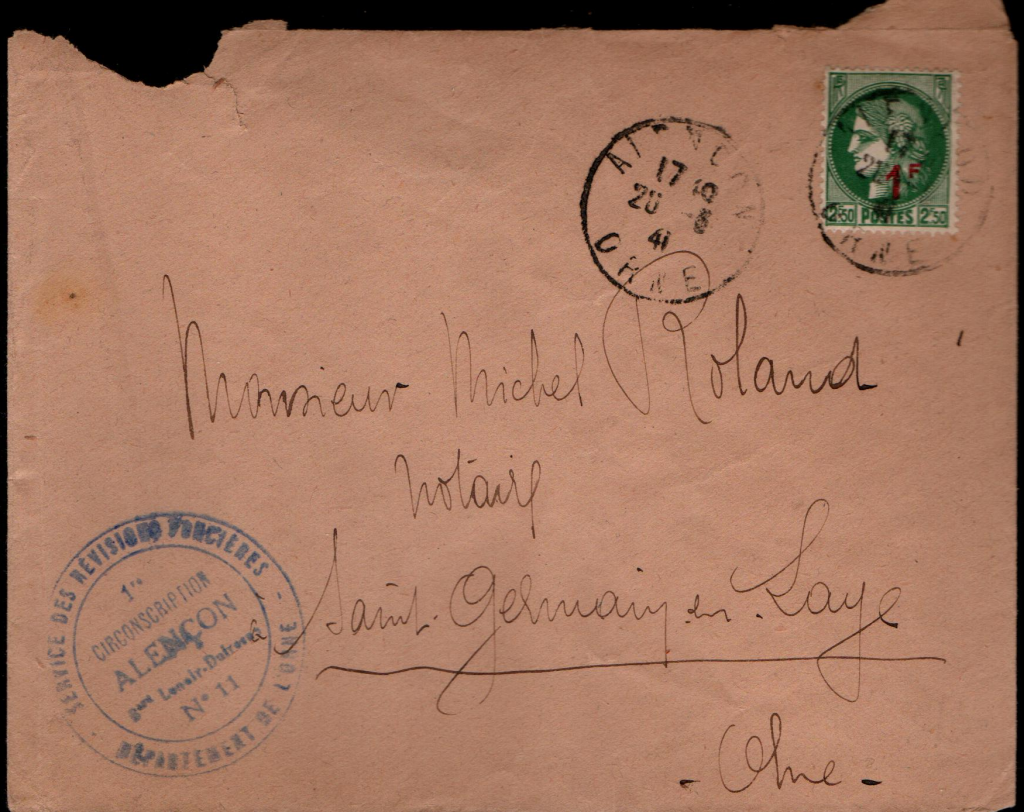 ALENÇON
17
20 -8
41
ORNE
1F
2F50 POSTES 2F50
ORNE
Monsieur Michel Roland
notaire
à Saint-Germain-en-Laye
- Orne -
SERVICE DES RÉVISIONS FONCIÈRES
1re
CIRCONSCRIPTION
ALENÇON
Lenoir-Dufresne
N° 11
- DÉPARTEMENT DE L'ORNE -